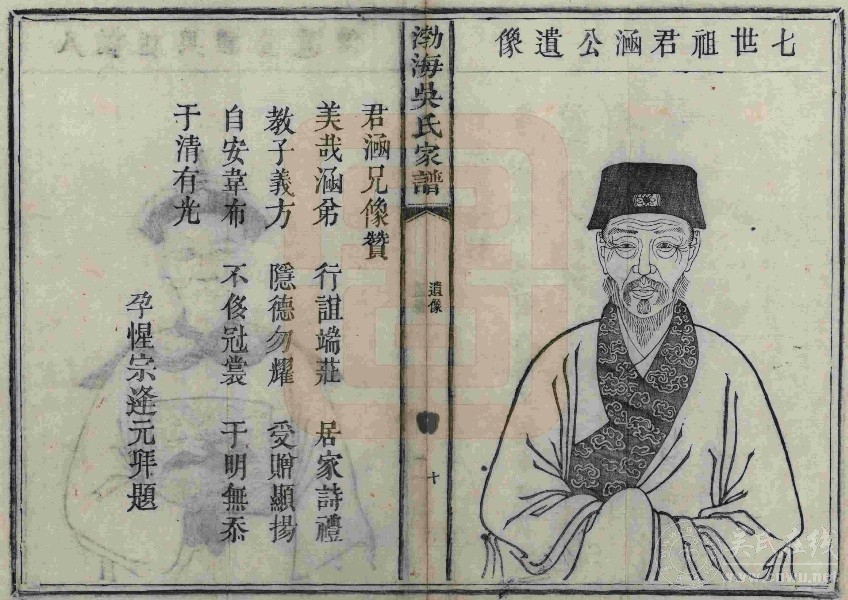 七世祖君涵公遺像
渤海吳氏家譜
遺像
十
君涵兄像贊
美哉涵 行詛端莊 居家詩禮
教子義方 隱德勿耀 受贈顯揚
自安韋布 不侈冠裳 于明無忝
于清有光
孕惺宗逢元拜題
吴氏在线